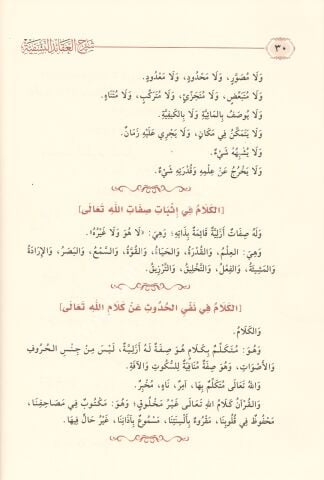 ٣٠ شرح العقائد النسفية
وَلَا مُصَوَّرٍ، وَلَا مَحْدُودٍ، وَلَا مَعْدُودٍ.
وَلَا مُتَبَعِّضٍ، وَلَا مُتَجَزِّئٍ، وَلَا مُتَرَكِّبٍ، وَلَا مُتَنَاهٍ.
وَلَا يُوصَفُ بِالْمَائِيَّةِ وَلَا بِالْكَيْفِيَّةِ.
وَلَا يَتَمَكَّنُ فِي مَكَانٍ، وَلَا يَجْرِي عَلَيْهِ زَمَانٌ.
وَلَا يُشْبِهُهُ شَيْءٌ.
وَلَا يَخْرُجُ عَنْ عِلْمِهِ وَقُدْرَتِهِ شَيْءٌ.
[الكَلَامُ فِي إِثْبَاتِ صِفَاتِ اللهِ تَعَالَى]
وَلَهُ صِفَاتٌ أَزَلِيَّةٌ قَائِمَةٌ بِذَاتِهِ؛ وَهِيَ: «لَا هُوَ وَلَا غَيْرُهُ».
وَهِيَ: الْعِلْمُ، وَالْقُدْرَةُ، وَالْحَيَاةُ، وَالْقُوَّةُ، وَالسَّمْعُ، وَالْبَصَرُ، وَالْإِرَادَةُ
وَالْمَشِيئَةُ، وَالْفِعْلُ، وَالتَّخْلِيقُ، وَالتَّرْزِيقُ.
[الكَلَامُ فِي نَفْيِ الحُدُوثِ عَنْ كَلَامِ اللهِ تَعَالَى]
وَالْكَلَامُ.
وَهُوَ: مُتَكَلِّمٌ بِكَلَامٍ هُوَ صِفَةٌ لَهُ أَزَلِيَّةٌ، لَيْسَ مِنْ جِنْسِ الْحُرُوفِ
وَالْأَصْوَاتِ، وَهُوَ صِفَةٌ مُنَافِيَةٌ لِلسُّكُوتِ وَالْآفَةِ.
وَاللهُ تَعَالَى مُتَكَلِّمٌ بِهَا، آمِرٌ، نَاهٍ، مُخْبِرٌ.
وَالْقُرْآنُ كَلَامُ اللهِ تَعَالَى غَيْرُ مَخْلُوقٍ؛ وَهُوَ: مَكْتُوبٌ فِي مَصَاحِفِنَا،
مَحْفُوظٌ فِي قُلُوبِنَا، مَقْرُوءٌ بِأَلْسِنَتِنَا، مَسْمُوعٌ بِآذَانِنَا، غَيْرُ حَالٍّ فِيهَا.